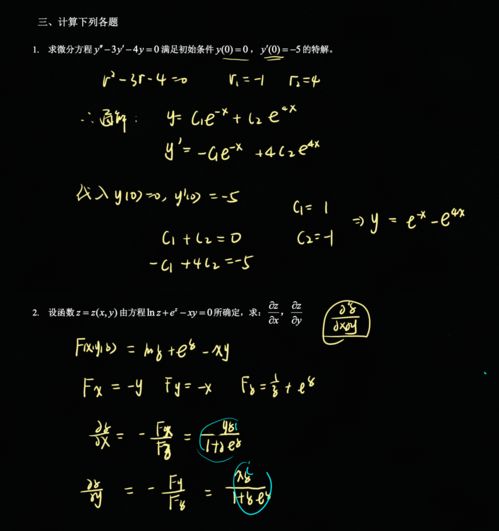 三、计算下列各题
1. 求微分方程 y″−3y′−4y=0 满足初始条件 y(0)=0， y′(0)=−5 的特解。
r²−3r−4=0 r₁=−1 r₂=4
∴通解: y= C₁e^{-x}+C₂e^{4x}
y′=−C₁e^{-x} +4C₂e^{4x}
代入 y(0)=0, y′(0)=−5
C₁+C₂=0 C₁=1
−C₁+4C₂=−5 C₂=−1 ⇒ y=e^{-x}−e^{4x}
2. 设函数 z=z(x,y) 由方程 ln z+e^z−xy=0 所确定，求: ∂z/∂x, ∂z/∂y ∂z/∂x∂y
F(x,y,z)=ln z+e^z−xy
Fx=−y Fy=−x Fz=1/z+e^z
∂z/∂x = −Fx/Fz = yz/(1+z e^z)
∂z/∂y = −Fy/Fz = xz/(1+z·e^z)